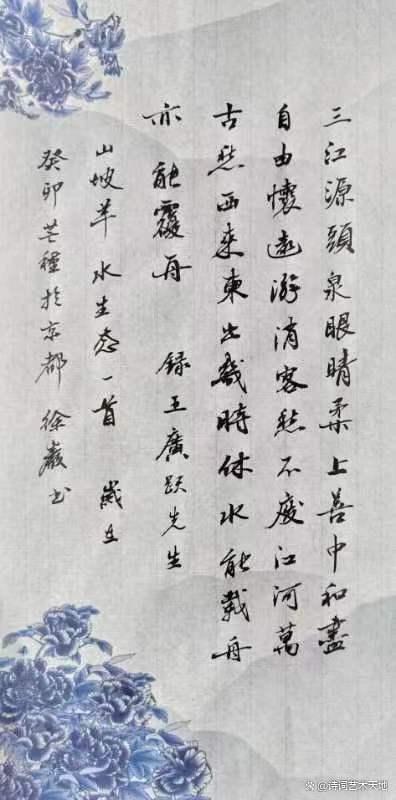 三江源頭泉眼晴柔上善中和盡
自由懷遠游消客愁不廢江河萬
古愁西來東出幾時休水能載舟
亦能覆舟 錄王廣跃先生
山坡羊水生态一首 歲在
癸卯芒種於京都 徐巖书
@诗词艺术天地